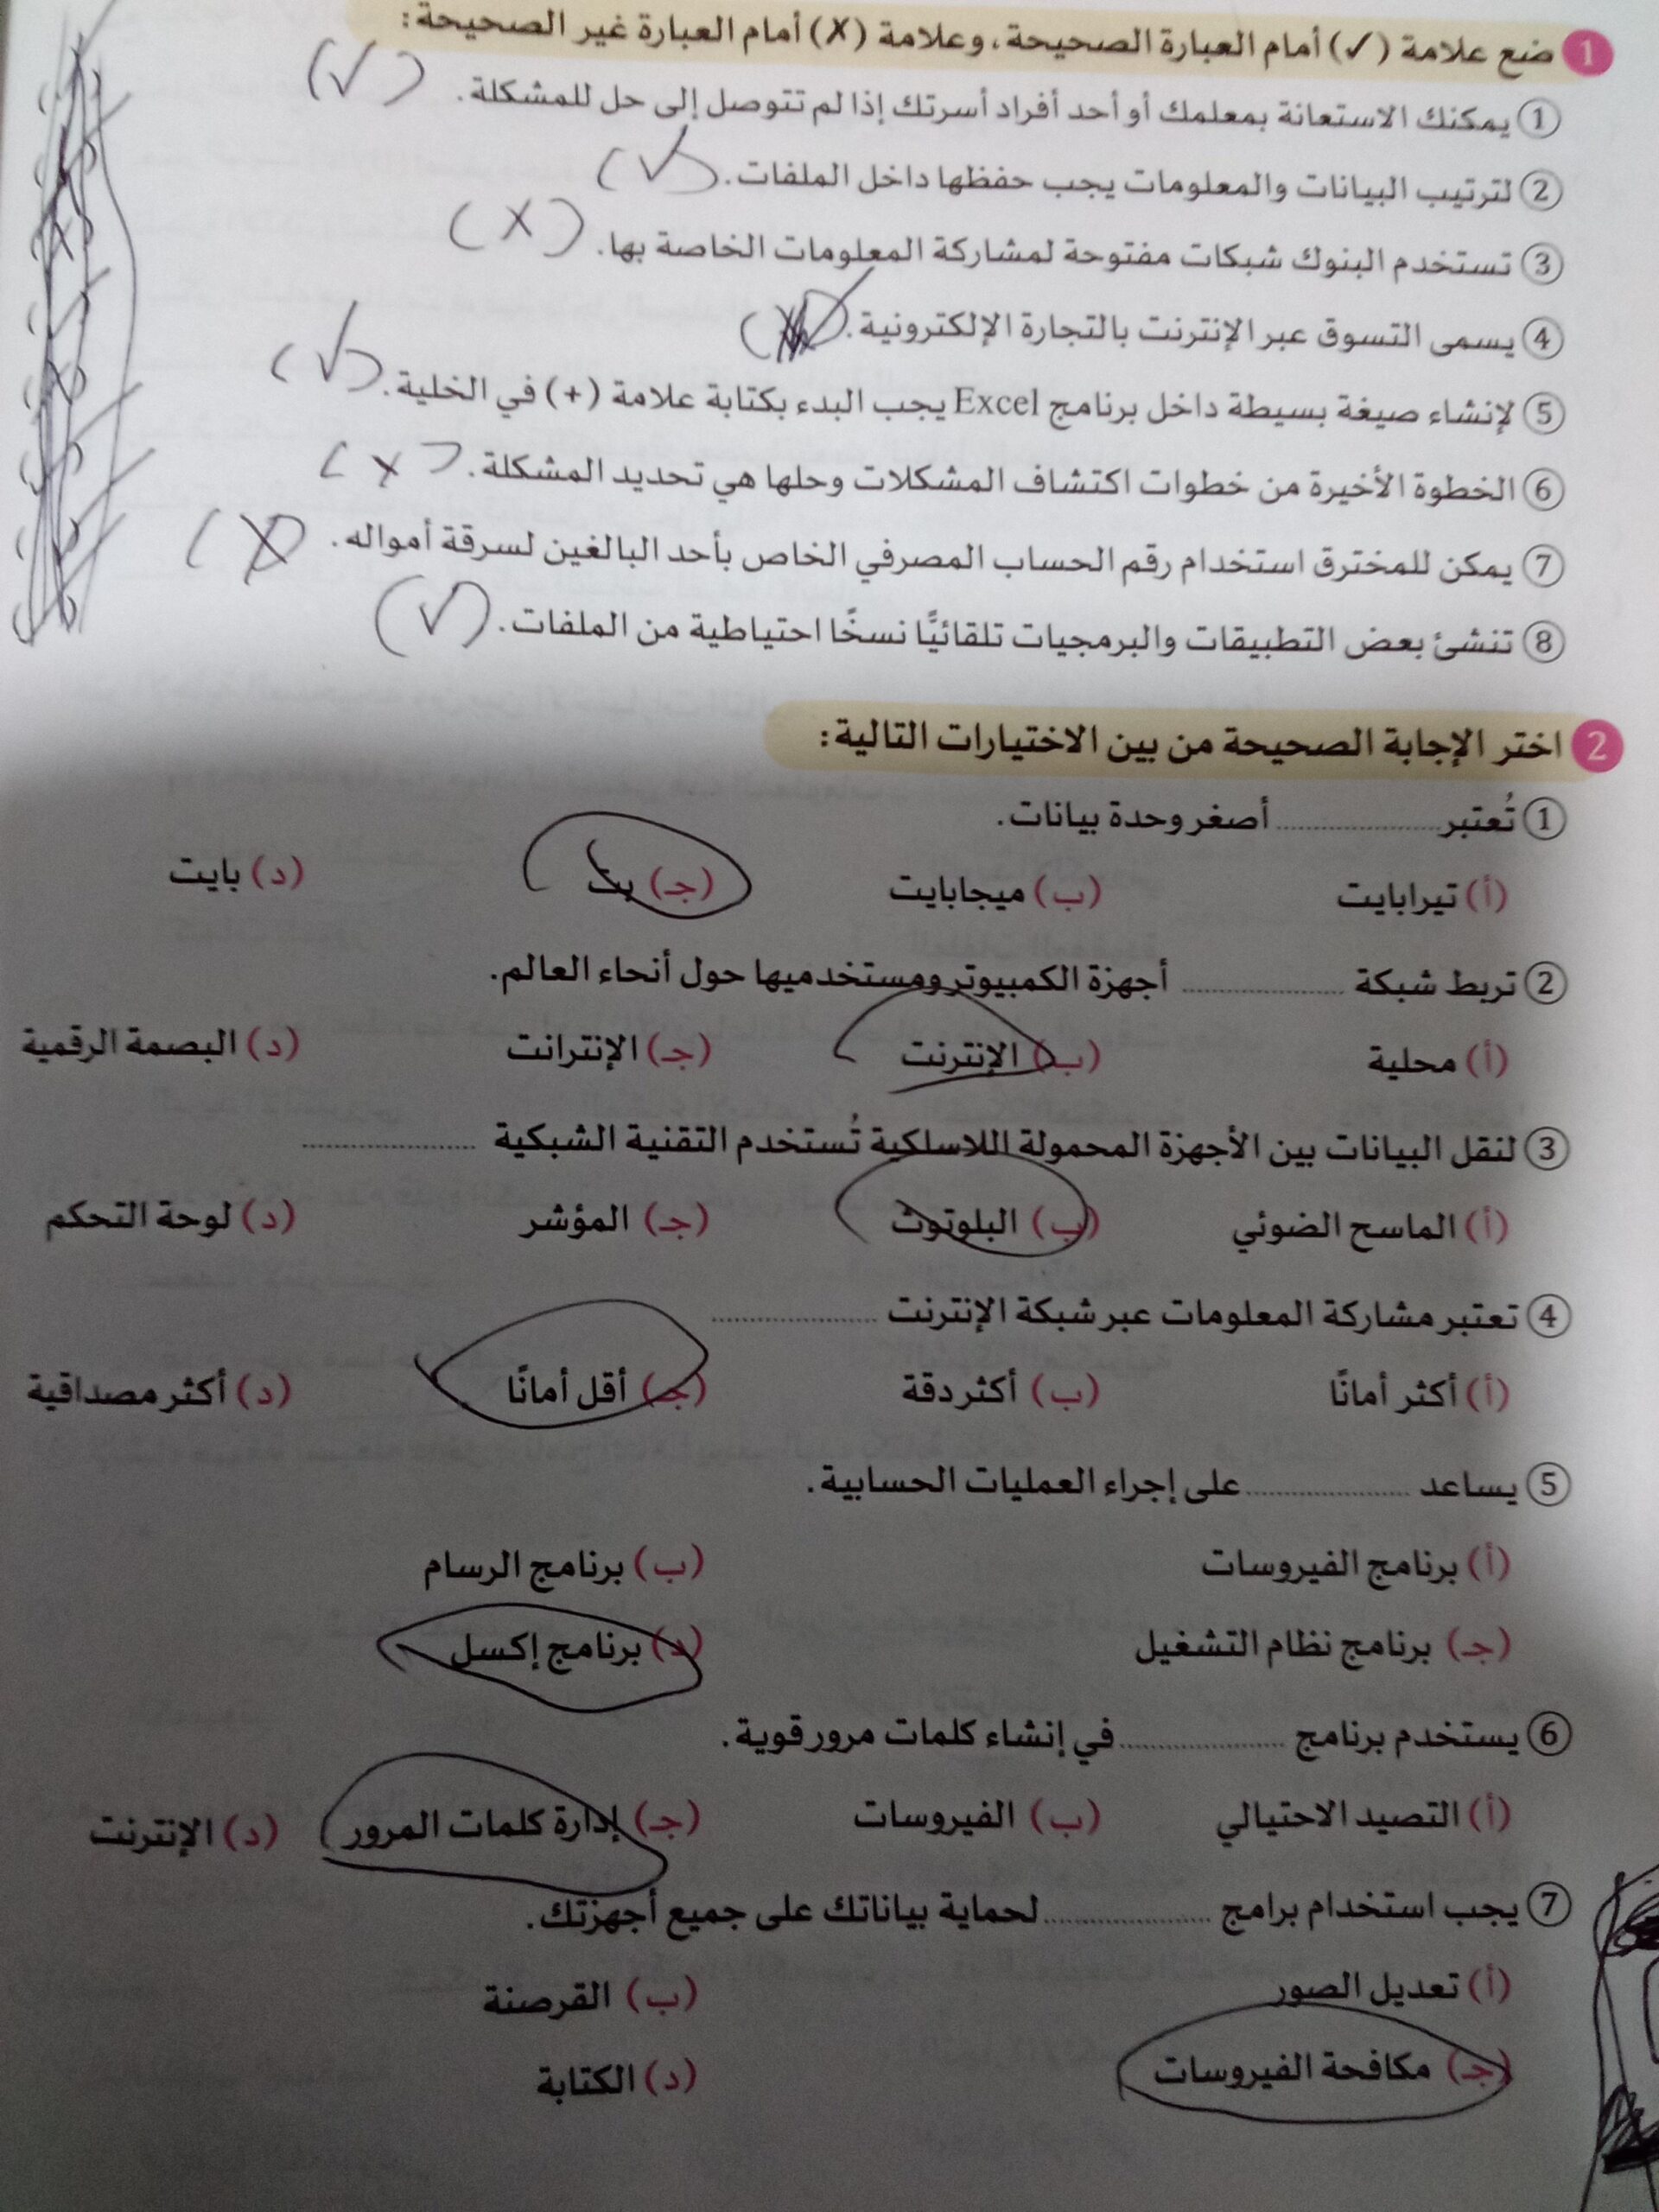 1 ضع علامة (✓) أمام العبارة الصحيحة، وعلامة (X) أمام العبارة غير الصحيحة:
① يمكنك الاستعانة بمعلمك أو أحد أفراد أسرتك إذا لم تتوصل إلى حل للمشكلة. (✓)
② لترتيب البيانات والمعلومات يجب حفظها داخل الملفات. (✓)
③ تستخدم البنوك شبكات مفتوحة لمشاركة المعلومات الخاصة بها. (X)
④ يسمى التسوق عبر الإنترنت بالتجارة الإلكترونية. (✓)
⑤ لإنشاء صيغة بسيطة داخل برنامج Excel يجب البدء بكتابة علامة (+) في الخلية. (✓)
⑥ الخطوة الأخيرة من خطوات اكتشاف المشكلات وحلها هي تحديد المشكلة. (X)
⑦ يمكن للمخترق استخدام رقم الحساب المصرفي الخاص بأحد البالغين لسرقة أمواله. (X)
⑧ تنشئ بعض التطبيقات والبرمجيات تلقائيًّا نسخًا احتياطية من الملفات. (✓)
2 اختر الإجابة الصحيحة من بين الاختيارات التالية:
① تُعتبر .................... أصغر وحدة بيانات.
(أ) تيرابايت (ب) ميجابايت (جـ) بت (د) بايت
② تربط شبكة .................... أجهزة الكمبيوتر ومستخدميها حول أنحاء العالم.
(أ) محلية (ب) الإنترنت (جـ) الإنترانت (د) البصمة الرقمية
③ لنقل البيانات بين الأجهزة المحمولة اللاسلكية تُستخدم التقنية الشبكية ....................
(أ) الماسح الضوئي (ب) البلوتوث (جـ) المؤشر (د) لوحة التحكم
④ تعتبر مشاركة المعلومات عبر شبكة الإنترنت ....................
(أ) أكثر أمانًا (ب) أكثر دقة (جـ) أقل أمانًا (د) أكثر مصداقية
⑤ يساعد .................... على إجراء العمليات الحسابية.
(أ) برنامج الفيروسات (ب) برنامج الرسام
(جـ) برنامج نظام التشغيل (د) برنامج إكسل
⑥ يستخدم برنامج .................... في إنشاء كلمات مرور قوية.
(أ) التصيد الاحتيالي (ب) الفيروسات (جـ) إدارة كلمات المرور (د) الإنترنت
⑦ يجب استخدام برامج .................... لحماية بياناتك على جميع أجهزتك.
(أ) تعديل الصور (ب) القرصنة
(جـ) مكافحة الفيروسات (د) الكتابة